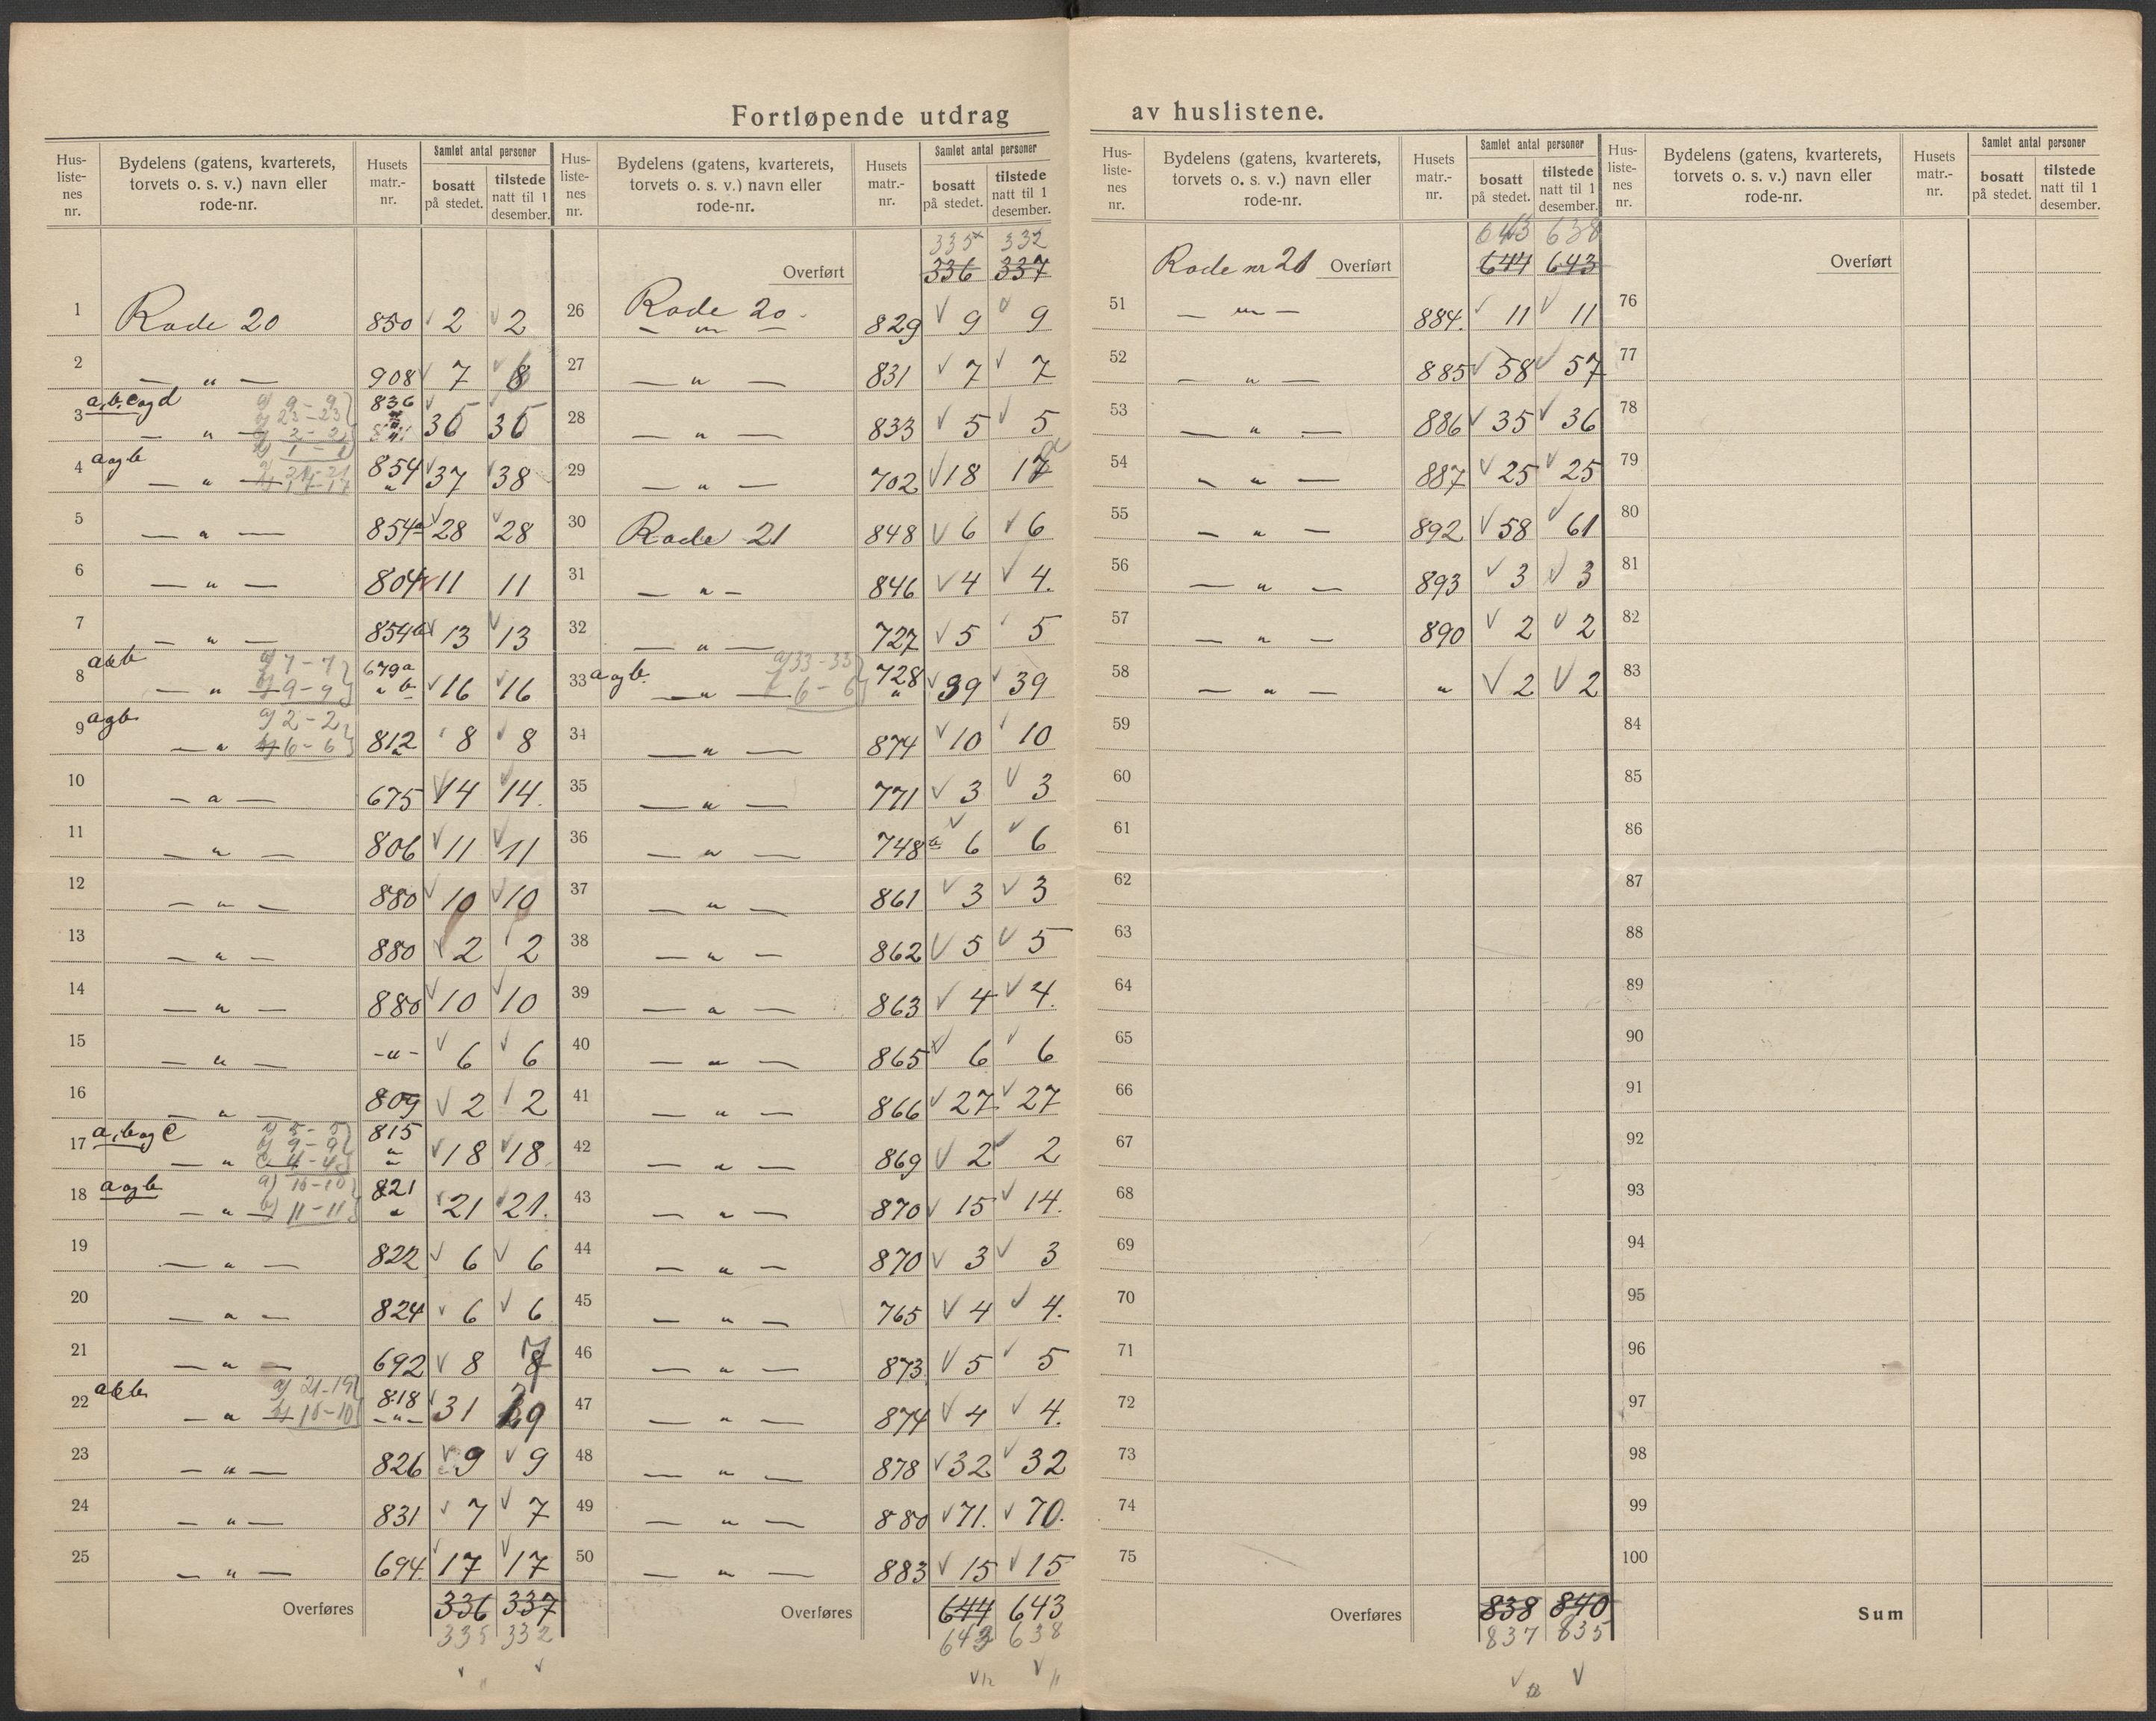 Fortløpende utdrag av huslistene.
Hus-listenes nr. | Bydelens (gatens, kvarterets, torvets o. s. v.) navn eller rode-nr. | Husets matr.-nr. | Samlet antal personer | bosatt på stedet. | tilstede natt til 1 desember.
1 Rode 20 850 2 2
2 — „ — 908 7 8
3 a, b, c og d — „ — 836 35 35
a) 9 - 9
b) 23 - 23
c) 2 - 2
d) 1 - 1
4 a og b — „ — 854 37 38
5 — „ — 854a 28 28
6 — „ — 804 11 11
7 — „ — 854b 13 13
8 a & b — „ — 679a „ b 16 16
a) 7 - 7
b) 9 - 9
9 a og b — „ — 812 8 8
a) 2 - 2
b) 6 - 6
10 — „ — 675 14 14.
11 — „ — 806 11 11
12 — „ — 880 10 10
13 — „ — 880 2 2
14 — „ — 880 10 10
15 — „ — - „ - 6 6
16 — „ — 809 2 2
17 a, b og c — „ — 815 18 18
a) 5 - 5
b) 9 - 9
c) 4 - 4
18 a og b — „ — 821 „ 21 21.
a) 10 - 10
b) 11 - 11
19 — „ — 822 6 6
20 — „ — 824 6 6
21 — „ — 692 8 7
22 a & b — „ — 818 - „ - 31 29
a) 21 - 19
b) 10 - 10
23 — „ — 826 9 9
24 — „ — 831 7 7
25 — „ — 694. 17 17
Overføres 336 337
335 332
Hus-listenes nr. | Bydelens (gatens, kvarterets, torvets o. s. v.) navn eller rode-nr. | Husets matr.-nr. | Samlet antal personer | bosatt på stedet. | tilstede natt til 1 desember.
335 332
Overført 336 337
26 Rode 20. — „ — 829 9 9
27 — „ — 831 7 7
28 — „ — 833 5 5
29 — „ — 702 18 17
30 Rode 21 848 6 6
31 — „ — 846 4 4.
32 — „ — 727 5 5
33 a og b. — „ — 728 „ 39 39
a) 33 - 33
6 - 6
34 — „ — 874 10 10
35 — „ — 771 3 3
36 — „ — 748b 6 6
37 — „ — 861 3 3
38 — „ — 862 5 5
39 — „ — 863 4 4.
40 — „ — 865 6 6
41 — „ — 866 27 27
42 — „ — 869 2 2
43 — „ — 870 15 14.
44 — „ — 870 3 3
45 — „ — 765 4 4.
46 — „ — 873 5 5
47 — „ — 874 4 4.
48 — „ — 878 32 32
49 — „ — 880 71. 70.
50 — „ — 883 15 15
Overføres 644 643
643 638
Hus-listenes nr. | Bydelens (gatens, kvarterets, torvets o. s. v.) navn eller rode-nr. | Husets matr.-nr. | Samlet antal personer | bosatt på stedet. | tilstede natt til 1 desember.
643 638
Rode nr 21 Overført 644 643
51 — „ — 884. 11 11
52 — „ — 885 58 57
53 — „ — 886 35 36
54 — „ — 887 25 25
55 — „ — 892 58 61
56 — „ — 893 3 3
57 — „ — 890 2 2
58 — „ — „ 2 2
59
60
61
62
63
64
65
66
67
68
69
70
71
72
73
74
75
Overføres 838 840
837 835
Hus-listenes nr. | Bydelens (gatens, kvarterets, torvets o. s. v.) navn eller rode-nr. | Husets matr.-nr. | Samlet antal personer | bosatt på stedet. | tilstede natt til 1 desember.
Overført
76
77
78
79
80
81
82
83
84
85
86
87
88
89
90
91
92
93
94
95
96
97
98
99
100
Sum